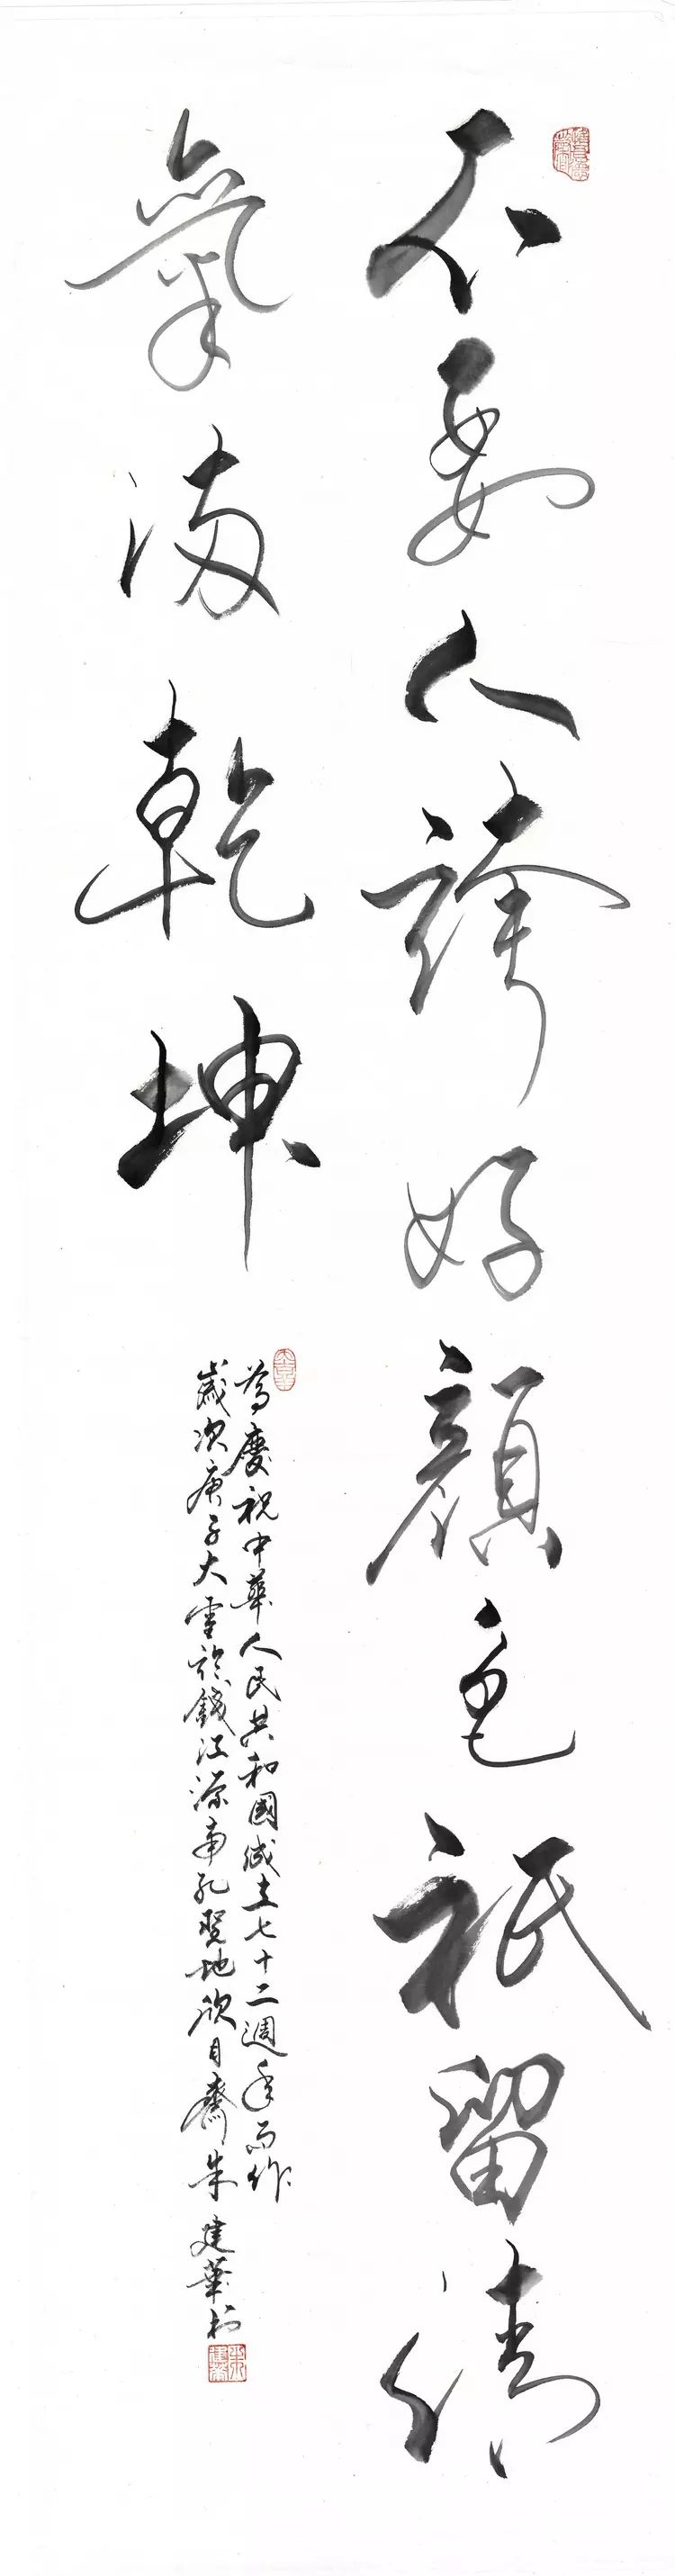 不要人誇好顏色祇留清
氣滿乾坤
為慶祝中華人民共和國成立七十二週年而作
歲次庚子大雪於錢江源南孔聖地欣目齋朱建華